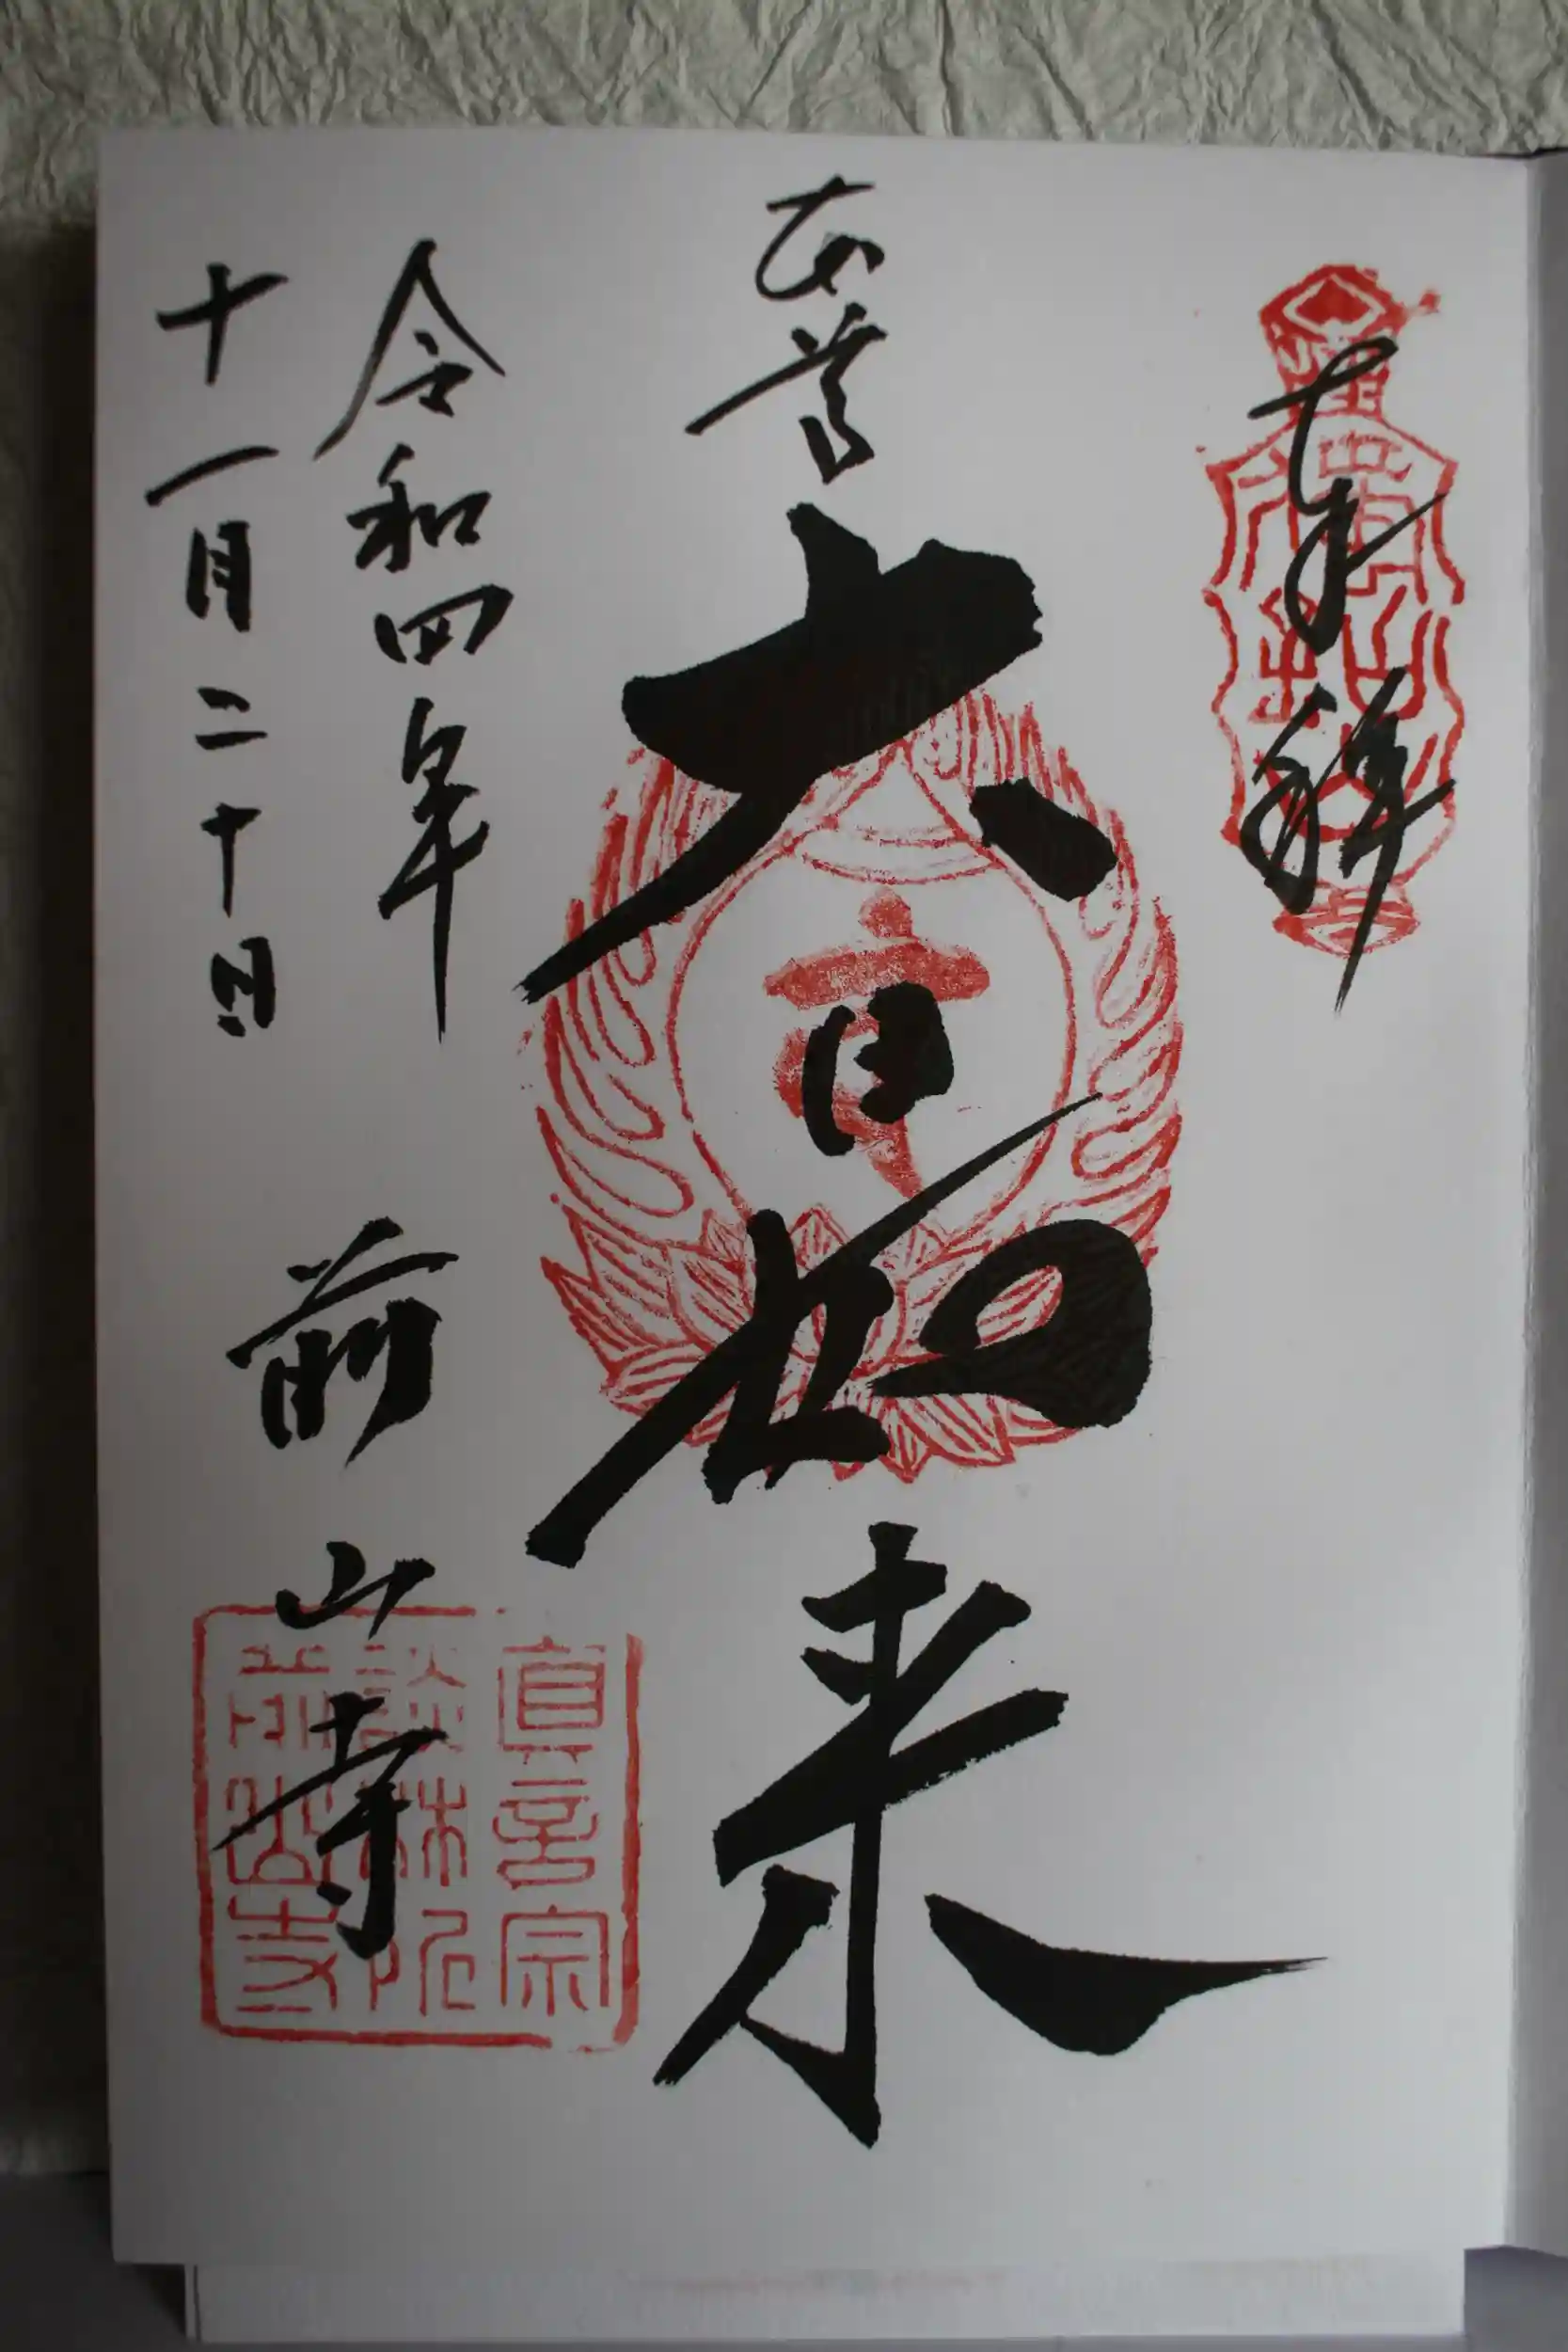 奉拝
本尊
大日如来
令和四年
十一月二十日
前山寺
真言宗
談林所
前山寺